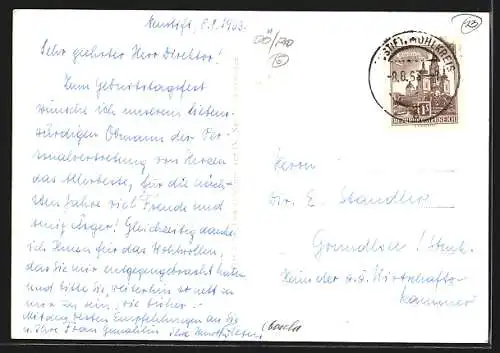 Neustift, 8.8.1963.
Sehr geehrter Herr Direktor!
Zum Geburtstagsfest
wünsche ich unserem liebens-
würdigen Obmann der Per-
sonalvertretung von Herzen
das Allerbeste, für die näch-
sten Jahre viel Freude und
wenig Ärger! Gleichzeitig danke
ich Ihnen für das Wohlwollen,
das Sie mir entgegengebracht haben
und bitte Sie, weiterhin so nett zu
mir zu sein, wie bisher. —
Mit den besten Empfehlungen an Sie
u. Ihre Frau Gemahlin Ihre
OÖ/
STIFT, MÜHLKREIS
-8.8.63
REPUBLIK ÖSTERREICH
Herrn
Dir. E. Standler
Grundlsee / Stmk.
Heim der o.ö. Wirtschafts-
kammer